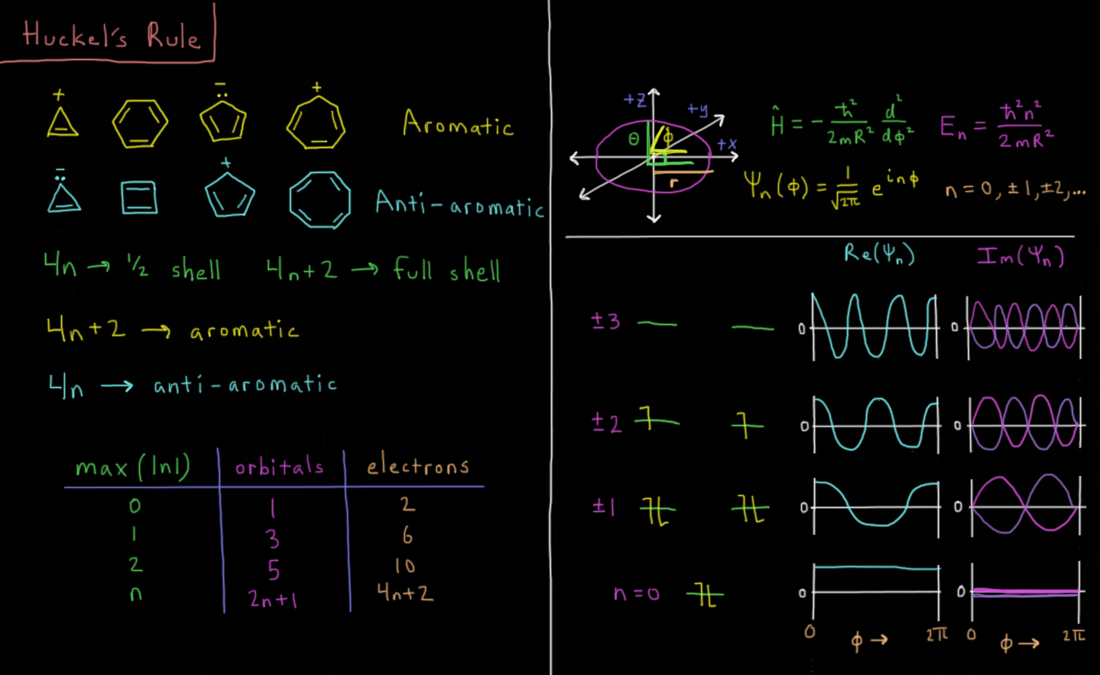 Huckel's Rule
+ − +
Aromatic
+
Anti-aromatic
4n → 1/2 shell 4n+2 → full shell
4n+2 → aromatic
4n → anti-aromatic
max(|n|) orbitals electrons
0 1 2
1 3 6
2 5 10
n 2n+1 4n+2
+z +y +x θ ϕ r
Ĥ = - ħ²/2mR² d²/dϕ²
Eₙ = ħ²n²/2mR²
Ψₙ(ϕ) = 1/√2π e^inϕ n=0,±1,±2,...
Re(Ψₙ) Im(Ψₙ)
±3 0 0
±2 0 0
±1 0 0
n=0 0 0
0 ϕ→ 2π 0 ϕ→ 2π